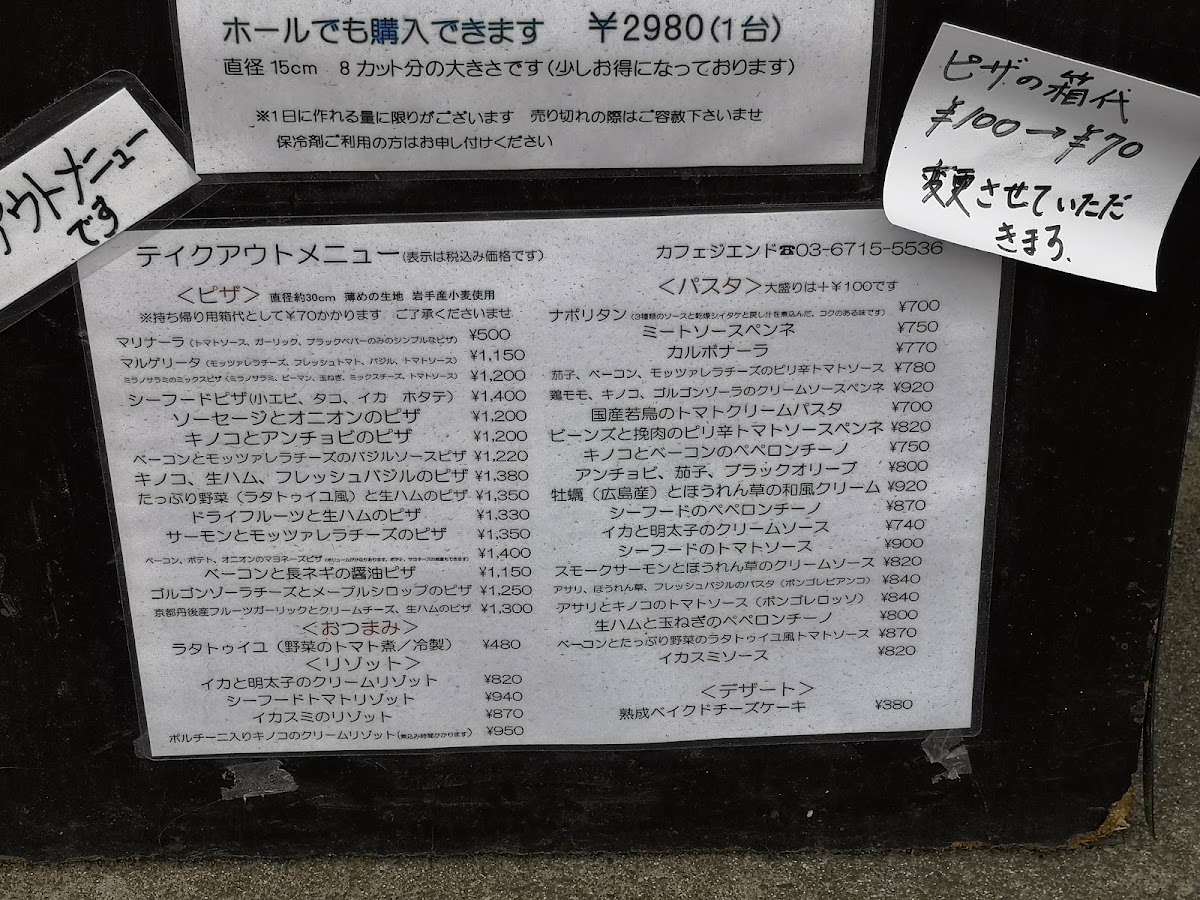 ホールでも購入できます ￥2980(1台)
直径15cm 8カット分の大きさです(少しお得になっております)
※1日に作れる量に限りがございます 売り切れの際はご容赦下さいませ
保冷剤ご利用の方はお申し付けください
アウトメニュー
です
ピザの箱代
¥100→¥70
変更させていただ
きまろ、
テイクアウトメニュー(表示は税込み価格です)
カフェジエンド☎03-6715-5536
＜ピザ＞ 直径約30cm 薄めの生地 岩手産小麦使用
※持ち帰り用箱代として￥70かかります ご了承くださいませ
マリナーラ(トマトソース、ガーリック、ブラックペパーのみのシンプルなピザ) ¥500
マルゲリータ(モッツァレラチーズ、フレッシュトマト、バジル、トマトソース) ¥1,150
ミラノサラミのミックスピザ(ミラノサラミ、ピーマン、玉ねぎ、ミックスチーズ、トマトソース) ¥1,200
シーフードピザ(小エビ、タコ、イカ ホタテ) ¥1,400
ソーセージとオニオンのピザ ¥1,200
キノコとアンチョビのピザ ¥1,200
ベーコンとモッツァレラチーズのバジルソースピザ ¥1,220
キノコ、生ハム、フレッシュバジルのピザ ¥1,380
たっぷり野菜(ラタトゥイユ風)と生ハムのピザ ¥1,350
ドライフルーツと生ハムのピザ ¥1,330
サーモンとモッツァレラチーズのピザ ¥1,350
ベーコン、ポテト、オニオンのマヨネーズピザ ¥1,400
ベーコンと長ネギの醤油ピザ ¥1,150
ゴルゴンゾーラチーズとメープルシロップのピザ ¥1,250
京都丹後産フルーツガーリックとクリームチーズ、生ハムのピザ ¥1,300
＜おつまみ＞
ラタトゥイユ(野菜のトマト煮/冷製) ¥480
＜リゾット＞
イカと明太子のクリームリゾット ¥820
シーフードトマトリゾット ¥940
イカスミのリゾット ¥870
ポルチーニ入りキノコのクリームリゾット(煮込み時間かかります) ¥950
＜パスタ＞大盛りは＋￥100です
ナポリタン(3種類のソースと乾燥シイタケと戻し汁を煮込んだ、コクのある味です) ¥700
ミートソースペンネ ¥750
カルボナーラ ¥770
茄子、ベーコン、モッツァレラチーズのピリ辛トマトソース ¥780
鶏モモ、キノコ、ゴルゴンゾーラのクリームソースペンネ ¥920
国産若鳥のトマトクリームパスタ ¥700
ビーンズと挽肉のピリ辛トマトソースペンネ ¥820
キノコとベーコンのペペロンチーノ ¥750
アンチョビ、茄子、ブラックオリーブ ¥800
牡蠣(広島産)とほうれん草の和風クリーム ¥920
シーフードのペペロンチーノ ¥870
イカと明太子のクリームソース ¥740
シーフードのトマトソース ¥900
スモークサーモンとほうれん草のクリームソース ¥820
アサリ、ほうれん草、フレッシュバジルのパスタ(ボンゴレビアンコ) ¥840
アサリとキノコのトマトソース(ボンゴレロッソ) ¥840
生ハムと玉ねぎのペペロンチーノ ¥800
ベーコンとたっぷり野菜のラタトゥイユ風トマトソース ¥870
イカスミソース ¥820
＜デザート＞
熟成ベイクドチーズケーキ ¥380